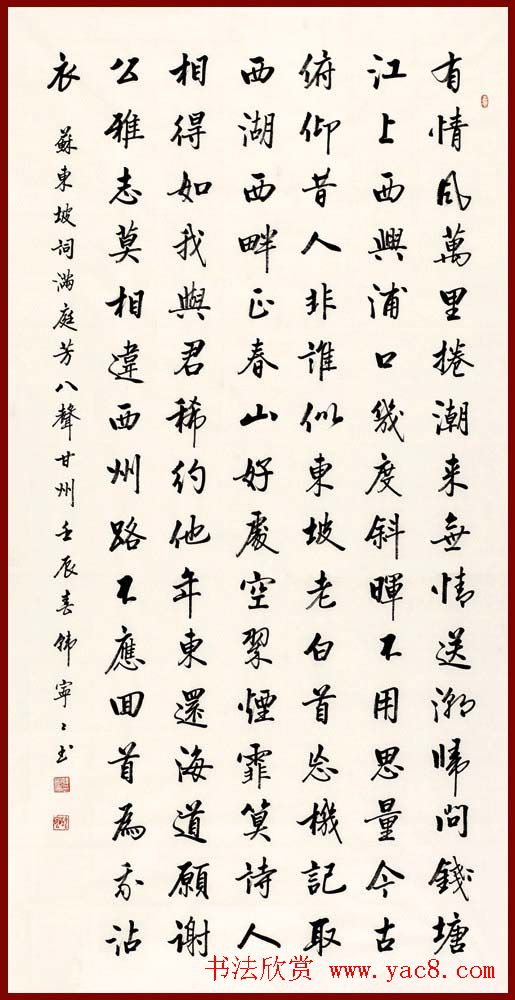 有情风萬里捲潮来無情送潮歸問錢塘
江上西興浦口幾度斜暉不用思量今古
俯仰昔人非誰似東坡老白首忘機記取
西湖西畔正春山好處空翠煙霏算詩人
相得如我與君稀約他年東還海道願謝
公雅志莫相違西州路不應回首為我沾
衣
蘇東坡詞满庭芳八聲甘州壬辰春韩寧々书
书法欣赏 www.yac8.com